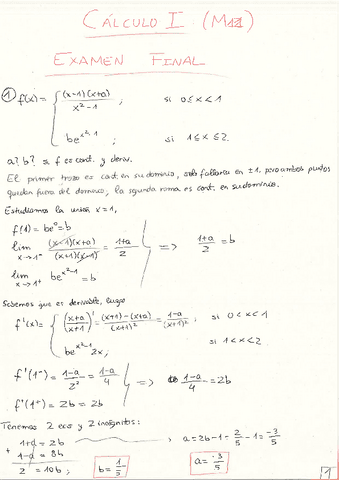 CÁLCULO I (M11)
EXAMEN FINAL
1 f(x) = { (x-1)(x+a) / x²-1 ; si 0≤x<1
be^(x²-1) ; si 1≤x≤2.
a? b? si f es cont. y deriv.
El primer trozo es cont. en su dominio, solo fallaría en ±1, pero ambos puntos
quedan fuera del dominio; la segunda rama es cont. en su dominio.
Estudiamos la unión x=1,
f(1) = be⁰ = b
lim x→1⁻ (x-1)(x+a) / (x+1)(x-1) = 1+a / 2 => 1+a / 2 = b
lim x→1⁺ be^(x²-1) = b
Sabemos que es derivable, luego
f'(x) = { (x+a / x+1)' = (x+1)-(x+a) / (x+1)² = 1-a / (x+1)² ; si 0<x<1
be^(x²-1) 2x ; si 1<x<2.
f'(1⁻) = 1-a / 2² = 1-a / 4 => 1-a / 4 = 2b
f'(1⁺) = 2b = 2b
Tenemos 2 ecs y 2 incógnitas:
1+a = 2b
+ 1-a = 8b
2 = 10b ; b = 1/5
a = 2b-1 = 2/5 - 1 = -3/5
a = -3/5
1